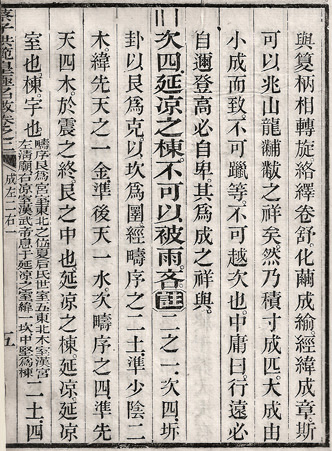 與篗柄相轉旋絡繹卷舒化繭成綸經緯成章斯
可以兆山龍黼黻之祥矣然乃積寸成匹大成由
小成而致不可躐等不可越次也中庸曰行遠必
自邇登高必自卑其爲成之祥與
次四延凉之棟不可以被雨客註二之一次四坼
卦以艮爲克以坎爲圍經疇序之二土準少陰二
木緯先天之一金準後天一水次疇序之四準先
天四木於震之終艮之中也延凉之棟延凉延凉
室也棟宇也疇序艮爲宮室東北之位夏后氏世室五東北木室漢宮
左淸廟右凉室漢武帝息于延凉之室緯一坎中堅爲棟二土四
成左二右一
五